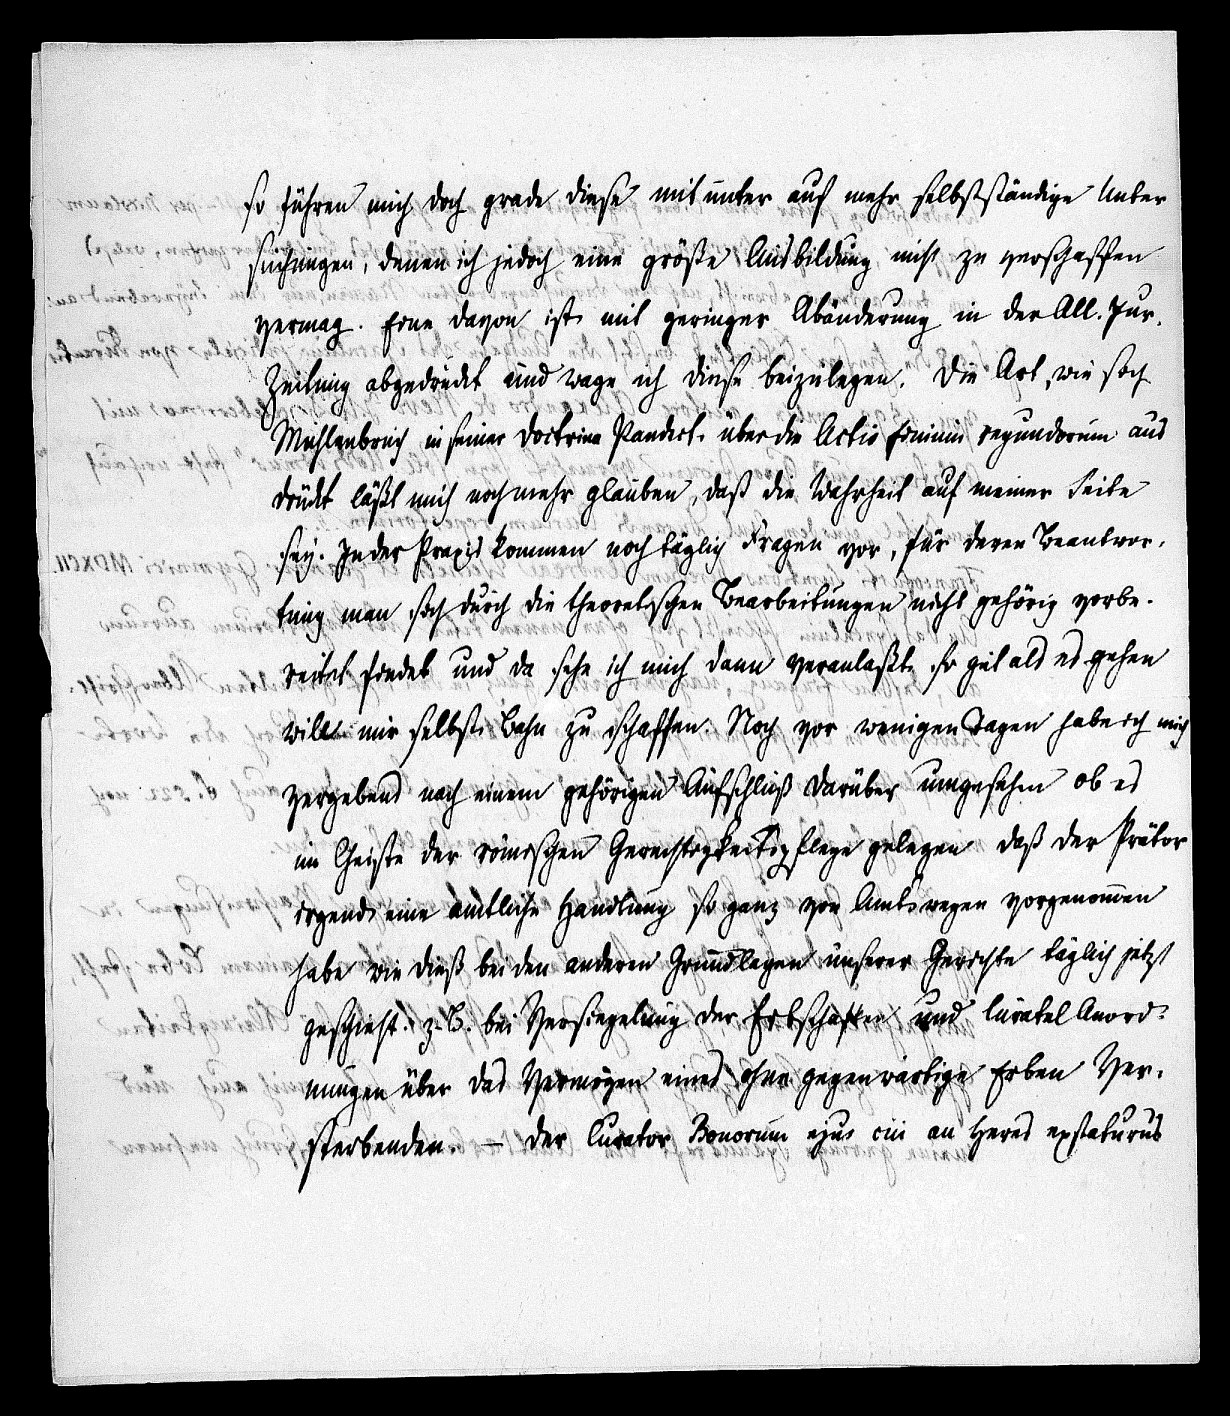 so führen mich doch grade diese mitunter auf mehr selbstständige Unter
suchungen, denen ich jedoch eine größre Ausbildung nicht zu verschaffen
vermag. Eine davon ist mit geringer Abänderung in der All. Jur.
Zeitung abgedruckt und wage ich diese beizulegen. Die Art, wie sich
Mühlenbruch in seiner Doctrina Pandect. über die Actio finium regundorum aus
drückt läßt mich noch mehr glauben, daß die Wahrheit auf meiner Seite
sey. In der Praxis kommen noch täglich Fragen vor, für deren Beantwor-
tung man sich durch die theoretischen Bearbeitungen nicht gehörig vorbe-
reitet findet und da sehe ich mich dann veranlaßt so gut als es gehen
will mir selbst Bahn zu schaffen. Noch vor wenigen Tagen habe ich mich
vergebens nach einem gehörigen Aufschluß darüber umgesehen ob es
im Geiste der römischen Gerechtigkeitspflege gelegen daß der Prätor
irgend eine amtliche Handlung so ganz von Amtswegen vorgenom̄en
habe wie dieß bei den anderen Grundlagen unserer Gerichte täglich jetzt
geschieht. z. B. bei Versiegelung der Erbschaften und Curatel Anord-
nungen über das Vermögen eines ohne gegenwärtige Erben Ver-
sterbenden. – Der Curator Bonorum ejus cui an Heres exstaturus